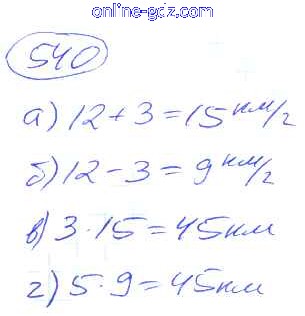 online-gdz.com
540
а) 12 + 3 = 15 км/г
б) 12 - 3 = 9 км/г
в) 3 · 15 = 45 км
г) 5 · 9 = 45 км